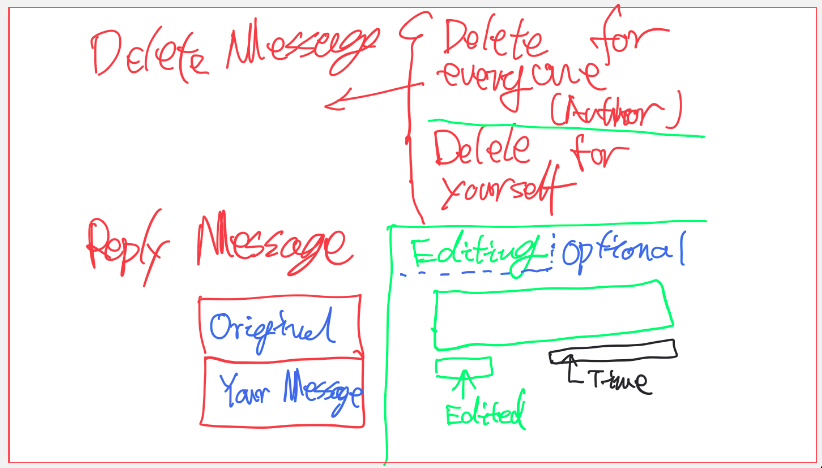 Delete Message
Delete for
everyone
(Author)
Delele for
yourself
Reply Message
Original
Your Message
Editing
Optional
Time
Edited